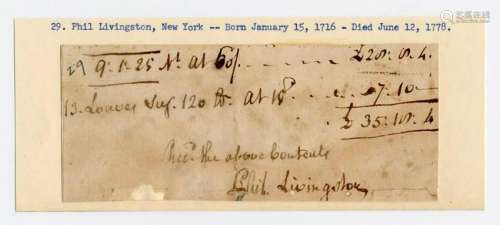 29. Phil Livingston, New York -- Born January 15, 1716 - Died June 12, 1778.
29 9:1:25 Nt at 60/. £28:8:4.
13 Loaves Sug. 120 lb at 15d £7:10.
£35:18:4
Recd the above Contents
Phil. Livingston